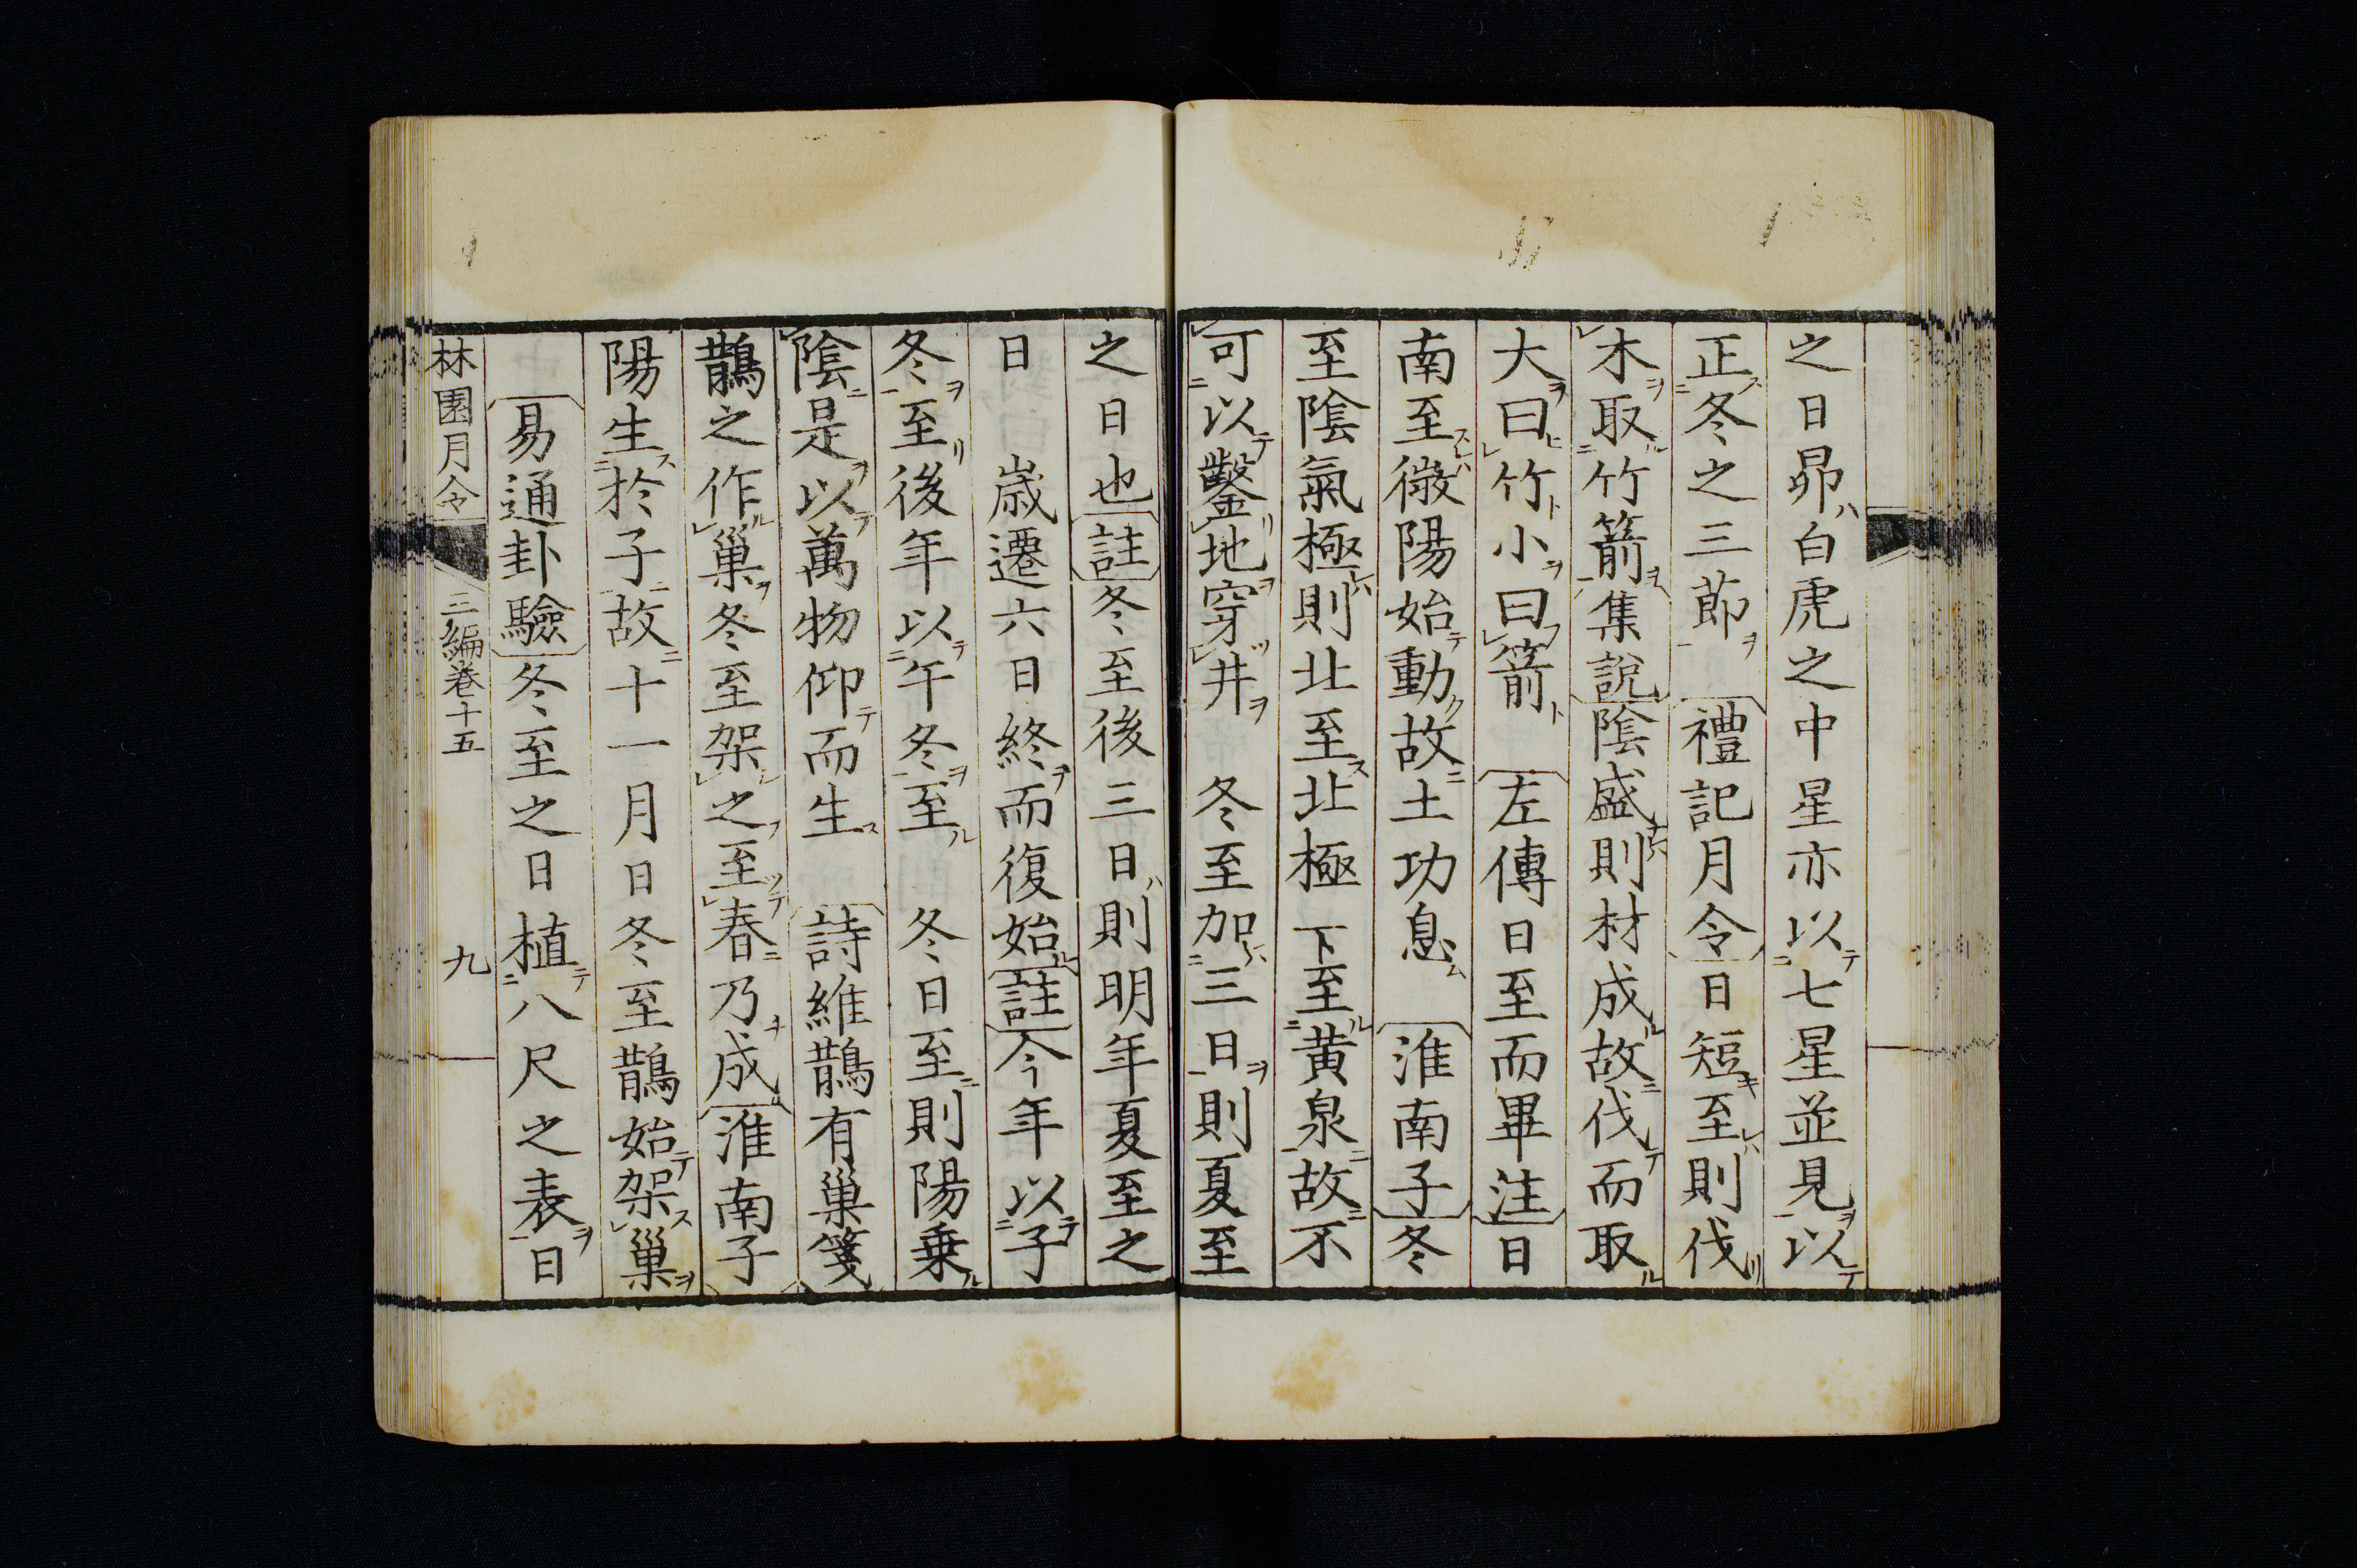 之日昴白虎之中星亦以七星並見以
正冬之三莭 禮記月令日短至則伐
木取竹箭集說陰盛則材成故伐而取
大曰竹小曰箭 左傳日至而畢注日
南至微陽始動故土功息 淮南子冬
至陰氣極則北至北極下至黃泉故不
可以鑿地穿井 冬至加三日則夏至
之日也註冬至後三日則明年夏至之
日 歲遷六日終而復始註今年以子
冬至後年以午冬至 冬日至則陽乗
陰是以萬物仰而生 詩維鵲有巢箋
鵲之作巢冬至架之至春乃成淮南子
陽生於子故十一月日冬至鵲始架巢
易通卦驗冬至之日植八尺之表日
林園月令 三編卷十五 九